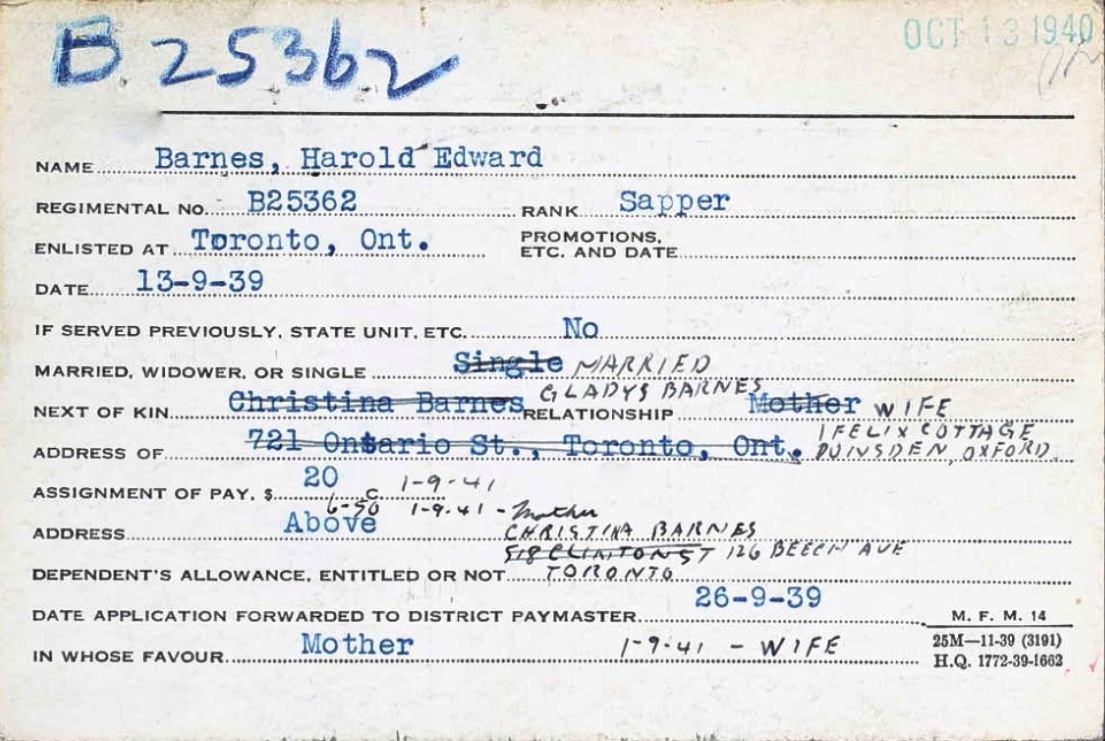 B 25362
OCT 13 1940
NAME Barnes, Harold Edward
REGIMENTAL No. B25362 RANK Sapper
ENLISTED AT Toronto, Ont. PROMOTIONS, ETC. AND DATE
DATE 13-9-39
IF SERVED PREVIOUSLY, STATE UNIT, ETC. No
MARRIED, WIDOWER, OR SINGLE Single MARRIED
GLADYS BARNES
NEXT OF KIN Christina Barnes RELATIONSHIP Mother WIFE
1 FELIX COTTAGE
ADDRESS OF 721 Ontario St., Toronto, Ont. DUNSDEN, OXFORD
ASSIGNMENT OF PAY, $ 20 C. 1-9-41
6-50 1-9-41 - Mother
ADDRESS Above CHRISTINA BARNES
518 CLINTON ST 126 BEECH AVE
DEPENDENT'S ALLOWANCE, ENTITLED OR NOT TORONTO
DATE APPLICATION FORWARDED TO DISTRICT PAYMASTER 26-9-39
M. F. M. 14
IN WHOSE FAVOUR Mother 1-9-41 - WIFE
25M—11-39 (3191)
H.Q. 1772-39-1662